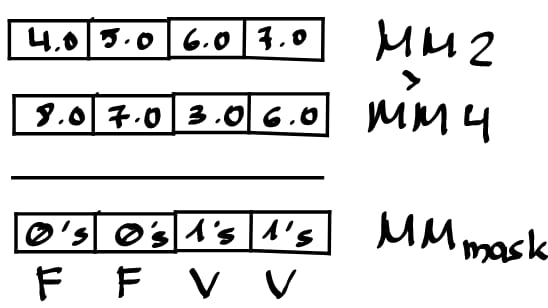 4.0 5.0 6.0 7.0 MM2
>
8.0 7.0 3.0 6.0 MM4
0's 0's 1's 1's MMmask
F F V V